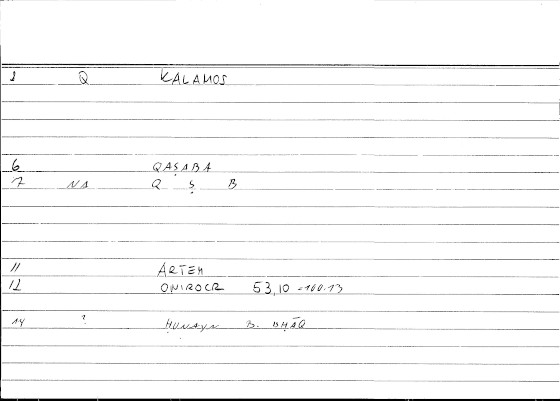 1 Q KALAMOS
6 QAṢABA
7 NA Q Ṣ B
11 ARTEM
12 ONIROCR 53,10 = 100.13
14 ? ḤUNAYN B. ISḤĀQ